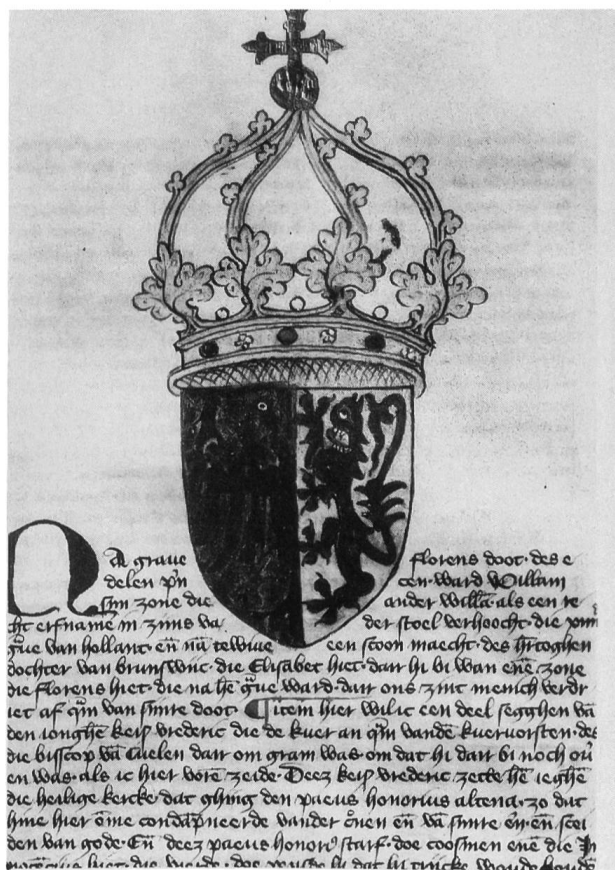 Na graue florens doot · des e
delen p̄n cen · ward Willam
sijn zone die ander will̄a · als een re
cht erfname in zijns va der stoel verhoecht · die
g̊ue van hollant · en̄ nā te wiue een scoon maecht · des h̄toghen
dochter van brunswiic · die Elisabet hiet · dair hi bi wan enē zone
die florens hiet · die na hē g̊ue ward · dair ons zint menich verdr
iet af q̄m van sijnre doot · ¶ item hier wil ic een deel segghen vā
den ionghē keiẜ vrederic die de kuer an q̄m vandē kuervorsten · des
die bisscop vā Cuelen dair om gram was · om dat hi dair bi noch ou̅
en was · als ic hier vorē zeide · Deez keiẜ vrederic zette hē ieghē
die heilige kercke · dat ghing den paeus honorius altena · zo dat
hine hier ōme condāpneerde vander c̊nen en̄ vā sijnre en̄ scei
den van gode · En̄ deez paeus honori⁹ starf · doe coosmen enē die In